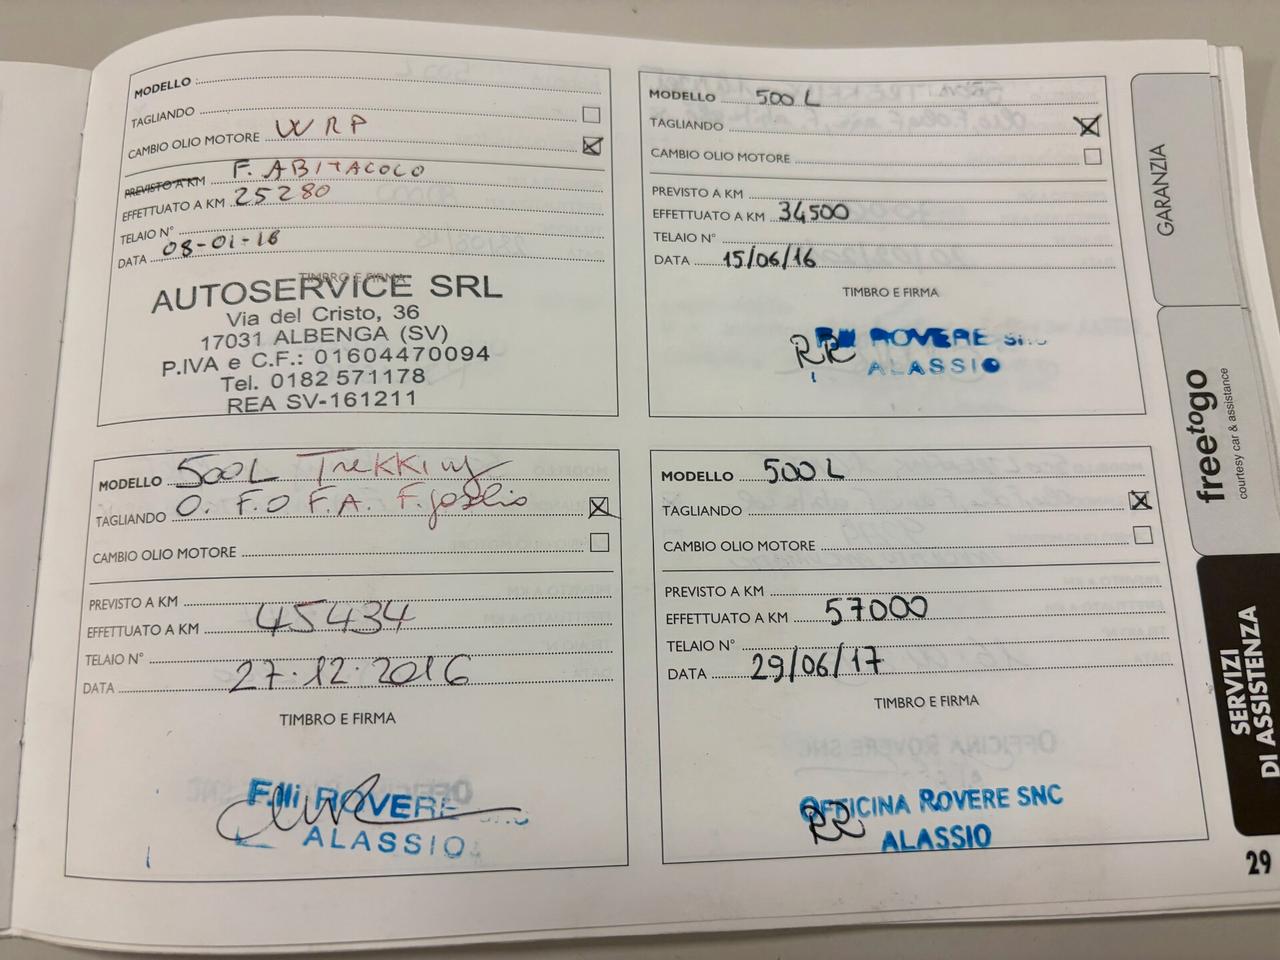 MODELLO
TAGLIANDO
CAMBIO OLIO MOTORE WRP
PREVISTO A KM F. ABITACOLO
EFFETTUATO A KM 25280
TELAIO N°
DATA 08-01-16
TIMBRO E FIRMA
AUTOSERVICE SRL
Via del Cristo, 36
17031 ALBENGA (SV)
P.IVA e C.F.: 01604470094
Tel. 0182 571178
REA SV-161211
MODELLO 500 L
TAGLIANDO
CAMBIO OLIO MOTORE
PREVISTO A KM
EFFETTUATO A KM 34500
TELAIO N°
DATA 15/06/16
TIMBRO E FIRMA
RR ROVERE
ALASSIO
MODELLO 500L Trekking
TAGLIANDO O. F.O F.A. F.
CAMBIO OLIO MOTORE
PREVISTO A KM
EFFETTUATO A KM 45434
TELAIO N°
DATA 27.12.2016
TIMBRO E FIRMA
F.lli ROVERE SNC
ALASSIO
MODELLO 500 L
TAGLIANDO
CAMBIO OLIO MOTORE
PREVISTO A KM
EFFETTUATO A KM 57000
TELAIO N°
DATA 29/06/17
TIMBRO E FIRMA
OFFICINA ROVERE SNC
RR ALASSIO
GARANZIA
freetogo
courtesy car & assistance
SERVIZI
DI ASSISTENZA
29